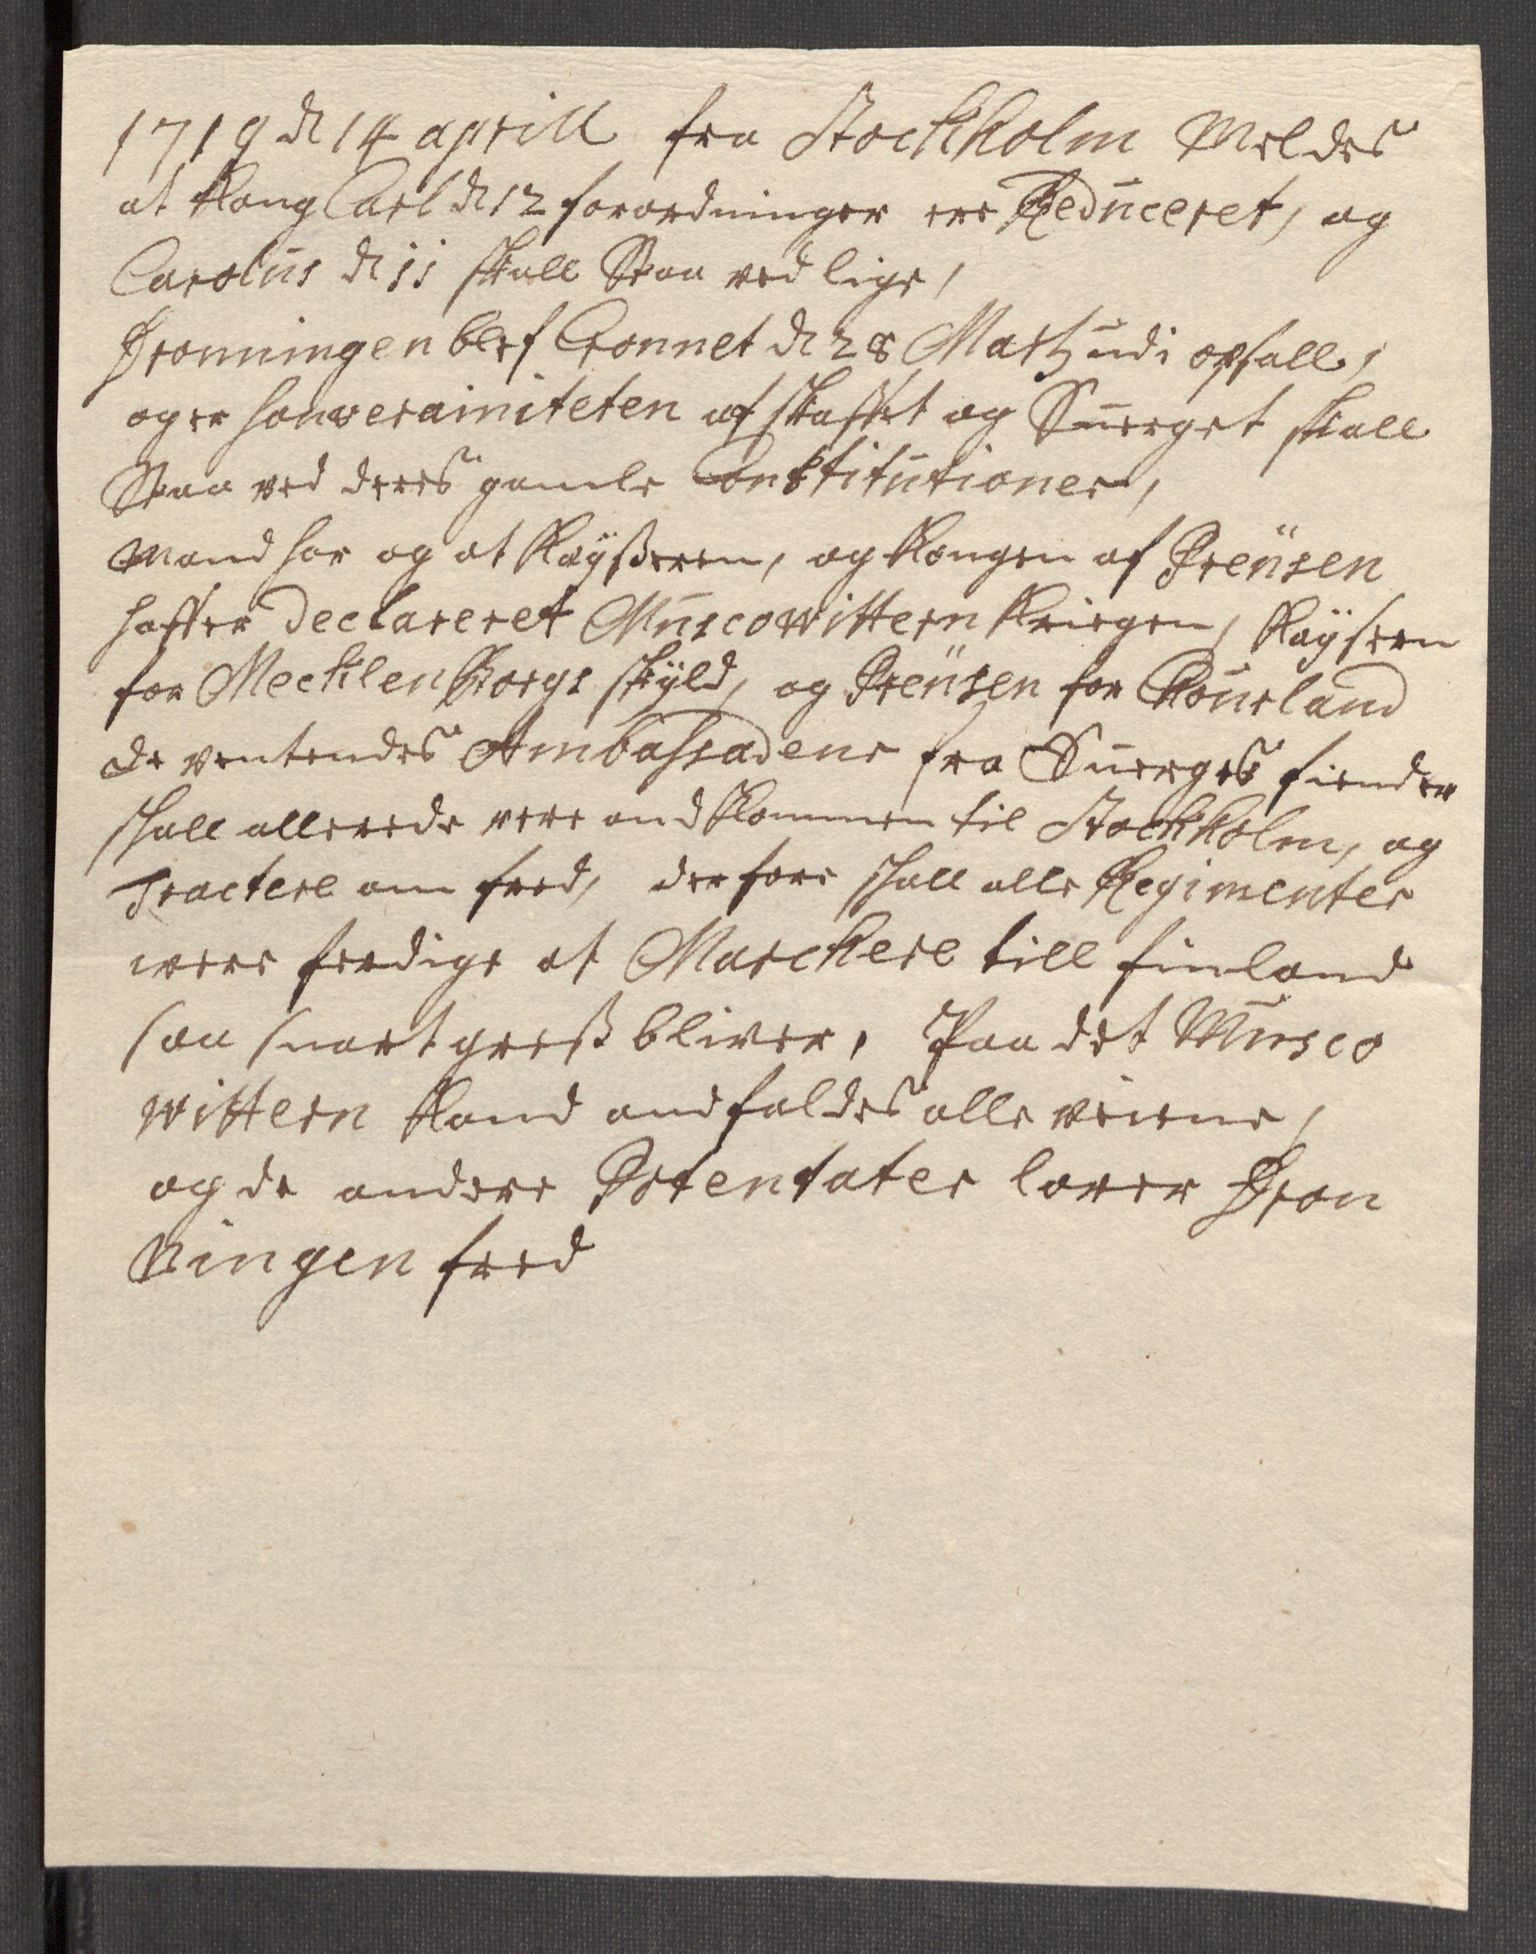 1719 d 14 aprill fra Stockholm Meldes
at Kong Carl d 12 forordninger ere Reduceret, og
Carolus d 11 skall Staa ved lige,
Dronningen blef Cronnet d 28 Martz udi opsall,
og er souverainiteten afskaffet og Suerget skall
Staa ved deres gamle Constitutioner,
Mand har og at Kaÿßeren, og Kongen af Preüsen
haffer Declareret Muscowittern Kriegen, Kaÿseren
for Mecklenborgs skÿld, og Preüsen for Kourland
de ventendes Ambassadeur fra Suerges fiender
skall allerede vere and Kommen til Stockholm, og
Tractere om fred, der fore skall alle Regimenter
were ferdige at Marchere till finland
saa snart greß bliver, Paa det Musco
wittern Kand andfaldes alle veiene,
og de andere Potentater lover Dron
Ningen fred